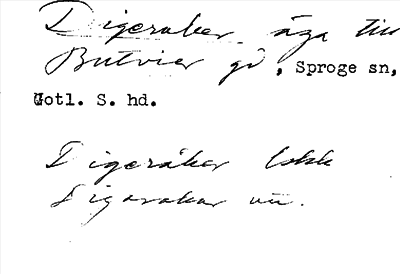 Digeraker, äga till
Butvier gd, Sproge sn,
Gotl. S. hd.
Digeråker
Digarakar un.